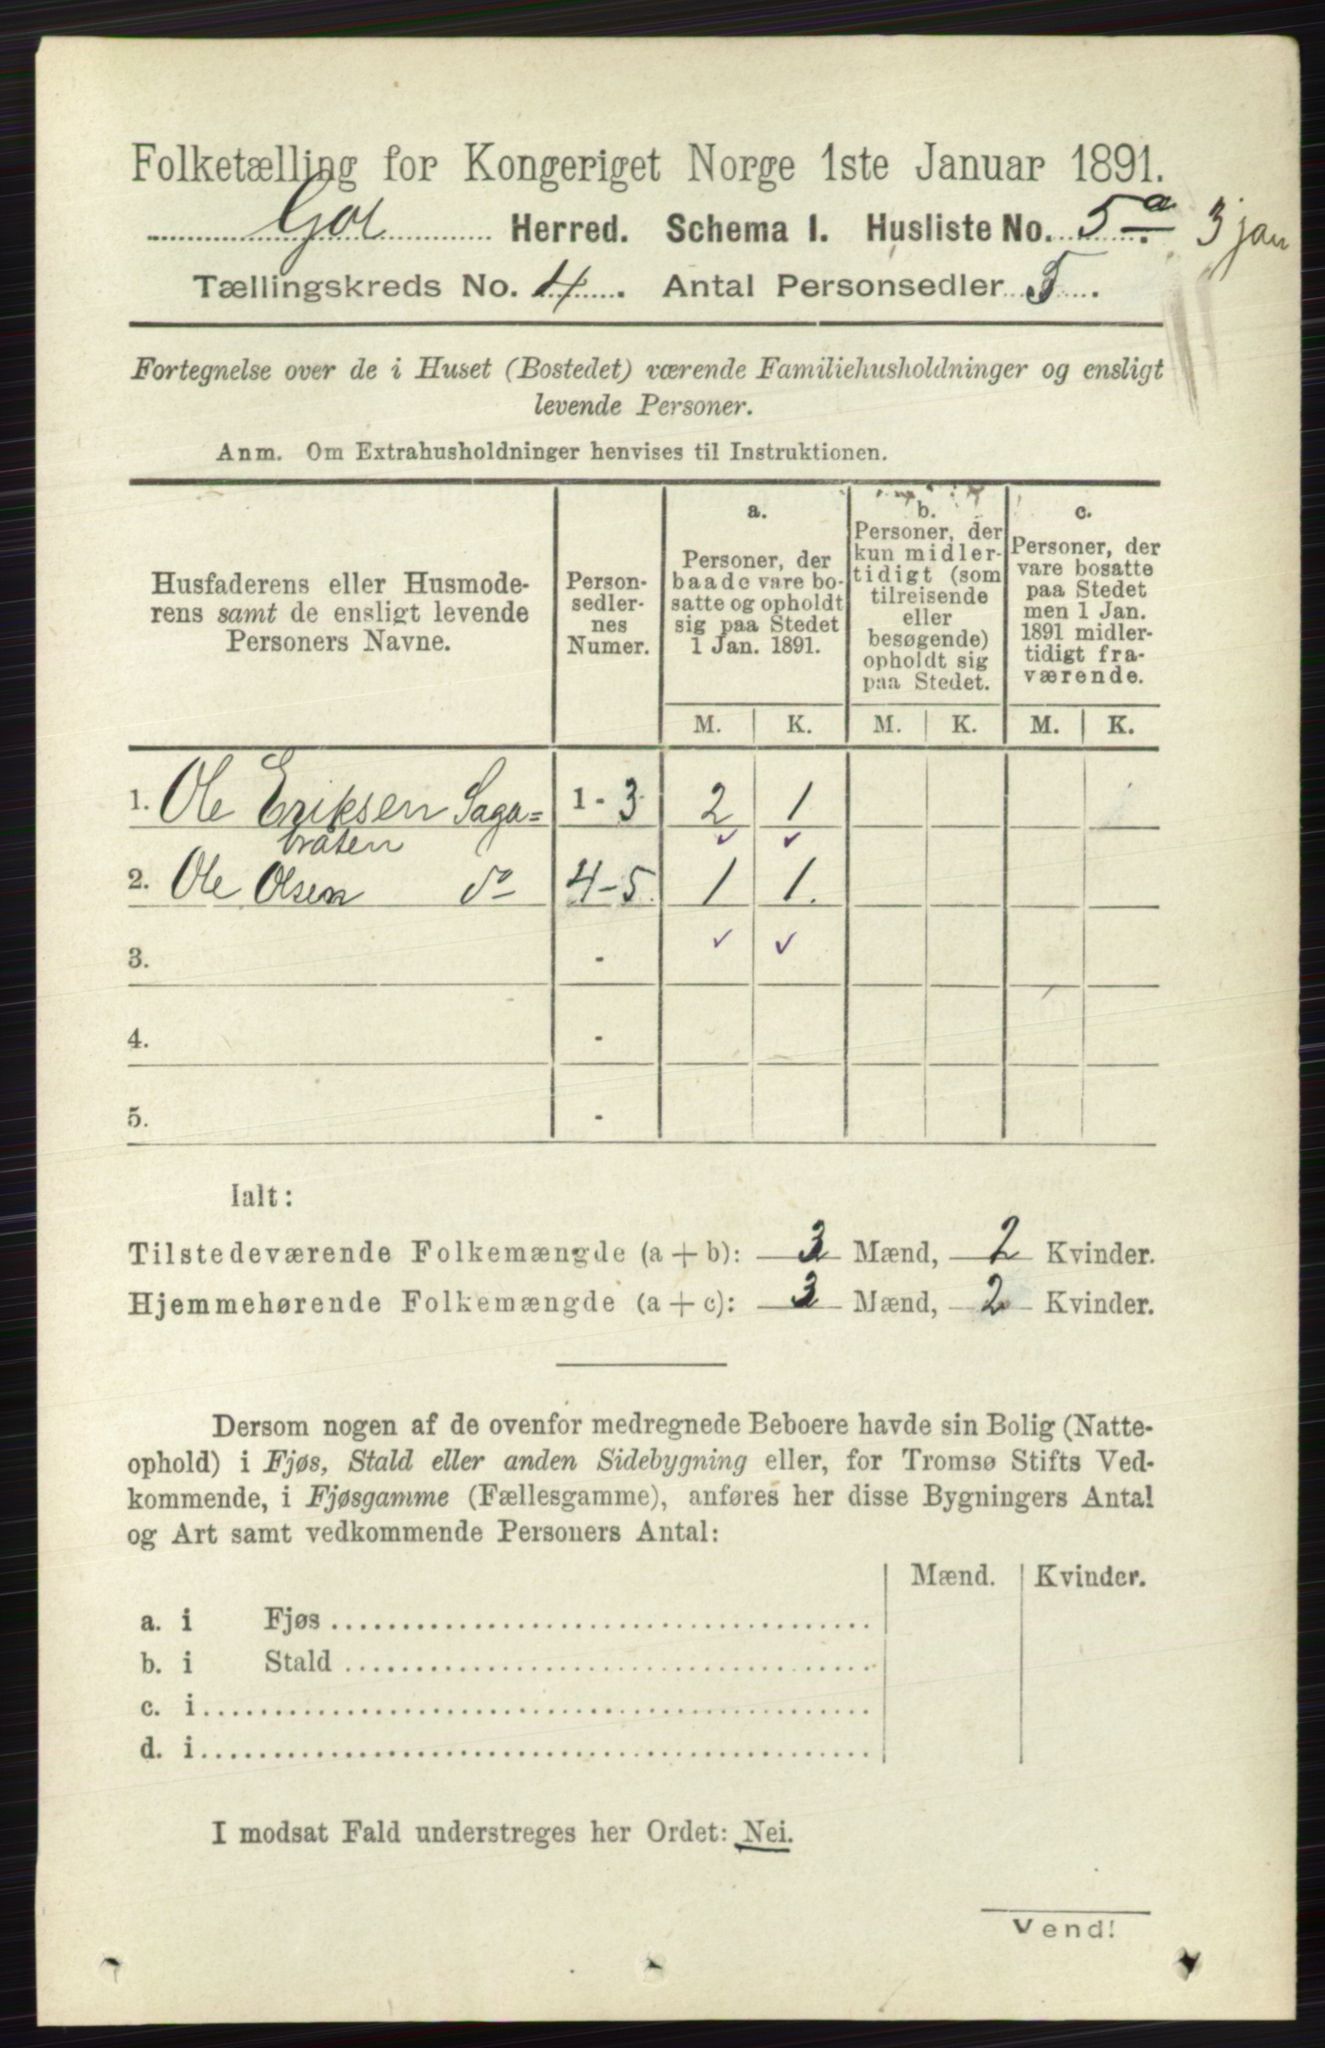 Folketælling for Kongeriget Norge 1ste Januar 1891.
Gol Herred. Schema I. Husliste No. 5a. 3 jan
Tællingskreds No. 4. Antal Personsedler 5.
Fortegnelse over de i Huset (Bostedet) værende Familiehusholdninger og ensligt
levende Personer.
Anm. Om Extrahusholdninger henvises til Instruktionen.
Husfaderens eller Husmode-
rens samt de ensligt levende
Personers Navne.
Person-
sedler-
nes
Numer.
a.
Personer, der
baade vare bo-
satte og opholdt
sig paa Stedet
1 Jan. 1891.
b.
Personer, der
kun midler-
tidigt (som
tilreisende
eller
besøgende)
opholdt sig
paa Stedet.
c.
Personer, der
vare bosatte
paa Stedet
men 1 Jan.
1891 midler-
tidigt fra-
værende.
M. K. M. K. M. K.
1. Ole Eriksen Saga= 1 - 3 2 1
bråten ✓ ✓
2. Ole Olsen do 4-5 1 1.
3. - ✓ ✓
4. -
5. -
Ialt:
Tilstedeværende Folkemængde (a + b): 3 Mænd, 2 Kvinder.
Hjemmehørende Folkemængde (a + c): 3 Mænd, 2 Kvinder.
Dersom nogen af de ovenfor medregnede Beboere havde sin Bolig (Natte-
ophold) i Fjøs, Stald eller anden Sidebygning eller, for Tromsø Stifts Ved-
kommende, i Fjøsgamme (Fællesgamme), anføres her disse Bygningers Antal
og Art samt vedkommende Personers Antal:
Mænd. Kvinder.
a. i Fjøs
b. i Stald
c. i
d. i
I modsat Fald understreges her Ordet: Nei.
Vend!